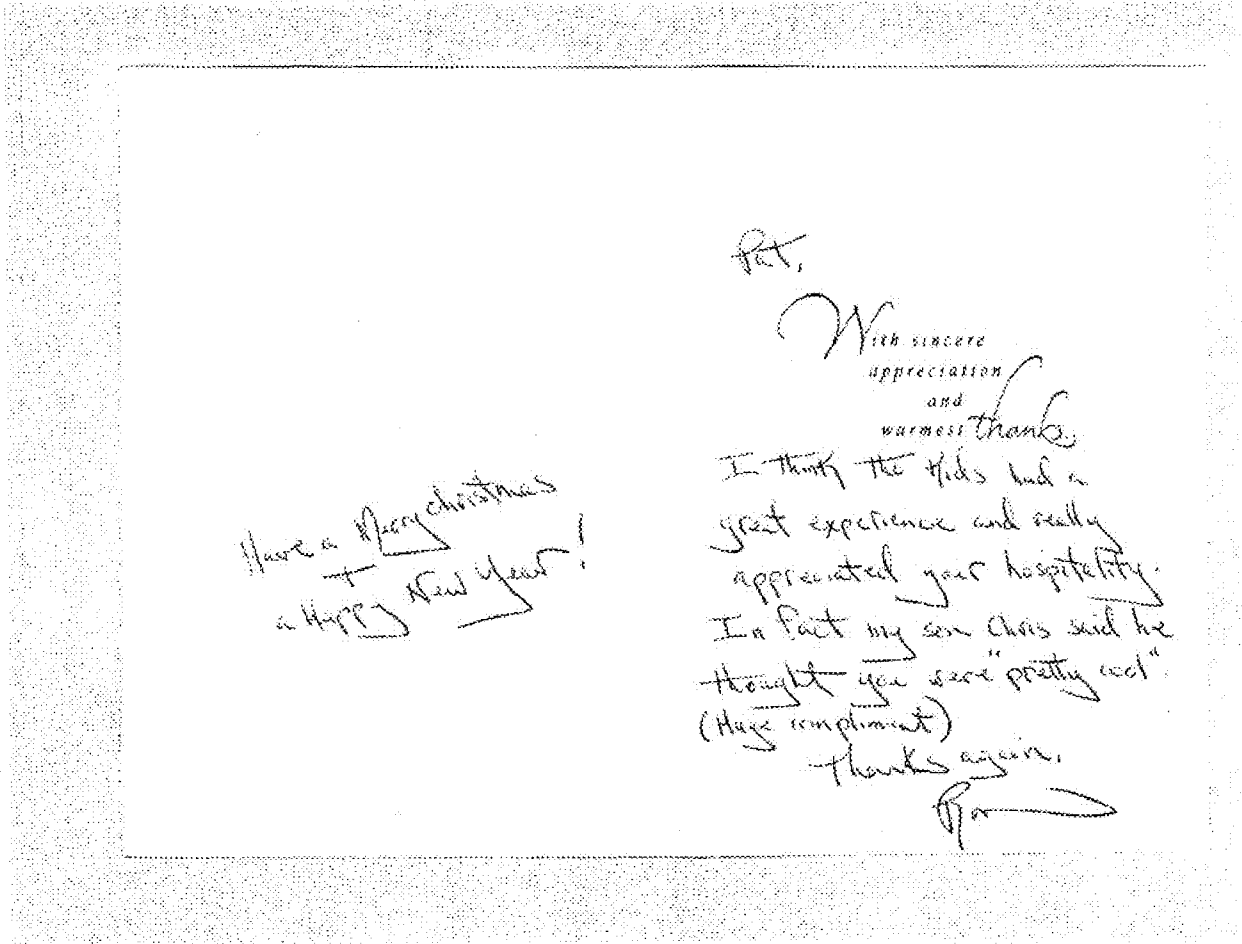 Have a Merry christmas
+
a Happy New Year!
Pat,
With sincere
appreciation
and
warmest thanks.
I think the kids had a
great experience and really
appreciated your hospitality.
In fact my son Chris said he
thought you were "pretty cool".
(Huge compliment)
Thanks again,